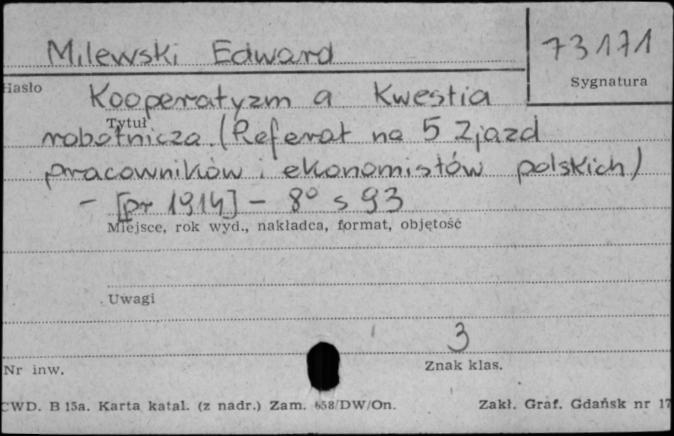 Milewski Edward
73171
Hasło
Sygnatura
Kooperatyzm a Kwestia
Tytuł
robotnicza (Referat na 5 Zjazd
pracowników i ekonomistów polskich)
- [pr 1914] - 8° s 93
Miejsce, rok wyd., nakładca, format, objętość
Uwagi
3
Nr inw.
Znak klas.
CWD. B 15a. Karta katal. (z nadr.) Zam. 658/DW/On.
Zakł. Graf. Gdańsk nr 17